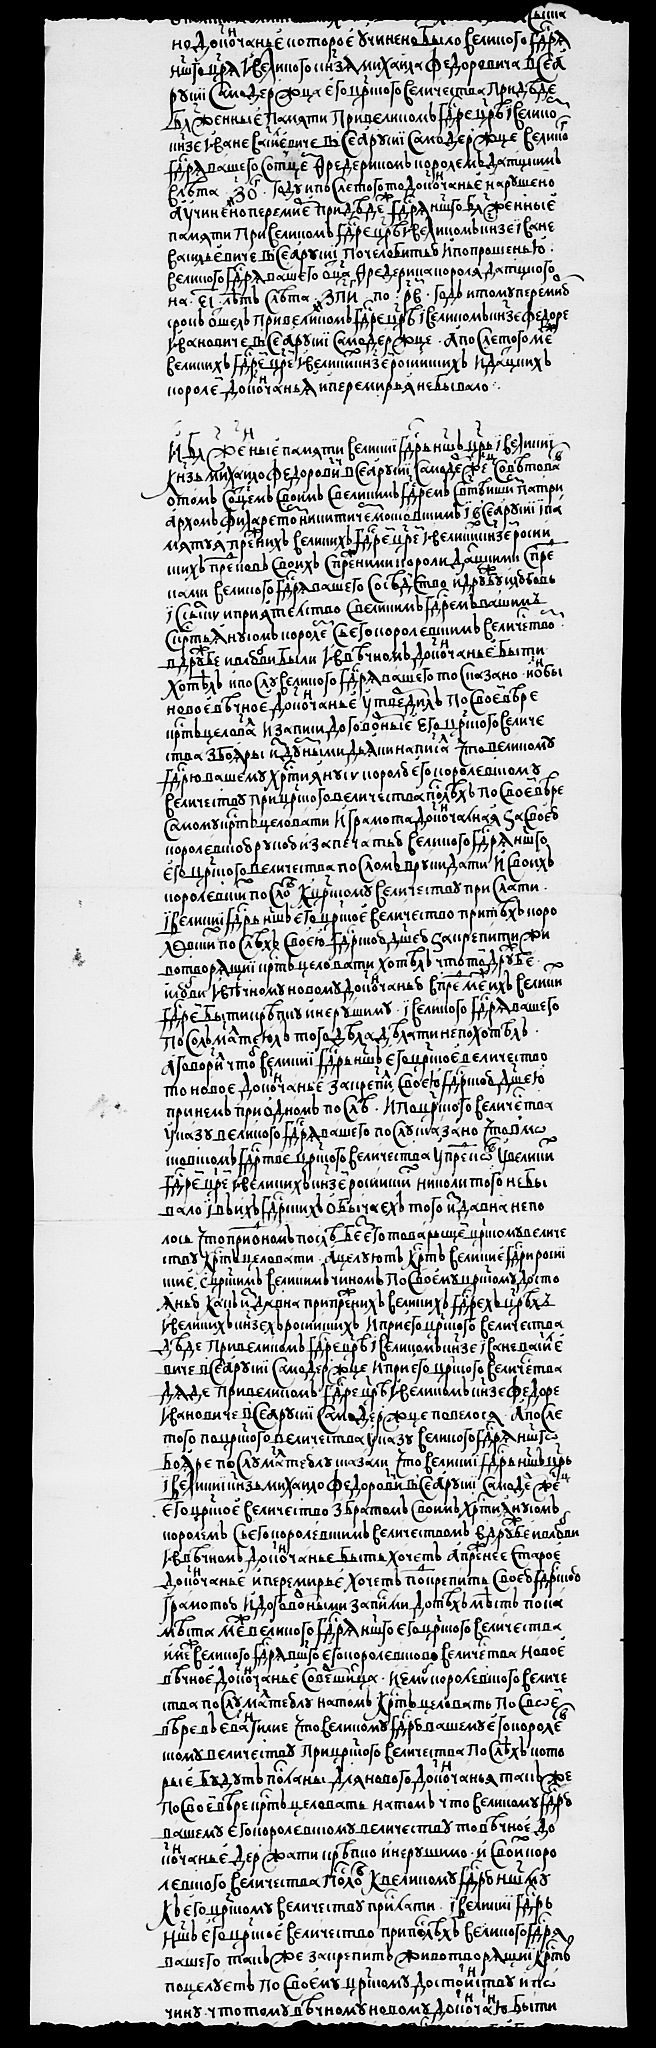 но докончанье которое учинено было великого гдря
ншго цря и великого кнзя михаила федоровича всеа
русии самодержца его црского величества при деде
блженные памяти при великом гдре цре и велико
кнзе иване василевиче всеа русии самодержце великого
гдря вашего с отцем Фредериком королем датцким
году и после того то докончанье нарушено
а учинено перемирье при деде гдря ншго блженные
памяти при великом гдре цре и великом кнзе iване
васильевиче всеа русии по челобитью и по прошенью
великого гдря вашего отца Фредерика короля датцкого
на лет с лета по год и тому перемирю
срок отшел при великом гдре цре i великом кнзе федоре
ивановиче всеа русии самодержце а после того меж
великих гдреи цреи и великих кнзеи росииских и датцких
королеи докончанья и перемирья не бывало
И блженые памяти великии гдрь ншъ црь i великии
кнзь михаило федорович всеа русии самодержец советовав
о том с отцем своим с великим гдрем светеишим патри
архом филаретом никитичем московским i всеа русии i па
мятуя прежних великих гдреи цреи и великих кнзеи росии
ских предков своих с прежними короли датцкими с пре
ками великого гдря вашего соседство и дружбу и любовь
i ссылку и приятелство с великим гдрем вашим
с христьянусом королем с его королевским величеством
в дружбе и в любви были и в вечном докончанье быти
хотел и послу великого гдря вашего то сказано чтобы
новое вечное докончанье утвердил по своеи вере
крт целовал и записи договорные его црского величе
ства з бояры и з думными дьяки написал что великому
гдрю вашему християнусу королю его королевскому
величеству при црского величества послех по своеи вере
самому крт целовати и грамота докончалная за своею
королевскою рукою и за печатью великого гдря ншго
его црского величества послом в руки дати и своих
королевских послов к црскому величеству прислати
i великии гдрь ншъ его црское величество при тех коро
левских послех своею гдрскою дшею закрепити жи
вотворящии крт целовати хотел что тои дружбе
и любви и вечному новому докончанью в прямые их великих
гдреи быти крепку и нерушиму i великого гдря вашего
посол матеюл того дела делати не похотел
а говорил что великии гдрь ншъ его црское величество
то новое докончанье закрепил своею гдрскою дшею
при нем при одном после и по црского величества
указу великого гдря вашего послу сказано что в мо
сковском гдрстве црского величества у предков у великих
гдреи цреи и великих кнзеи росииских николи того не бы
вало i в их гдрских обычаех того издавна не по
лось что при одном после без его товарыщеи црскому величе
ству крт целовати а целуют крт великие гдри росии
ские с црским великим чином по своему црскому досто
янью как издавна при прежних великих гдрех црех
и великих кнзех росииских и при его црского величества
деде при великом гдре цре i великом кнзе iване василе
виче всеа русии самодержце и при его црского величества
дяде при великом гдре цре и великом кнзе федоре
ивановиче всеа русии самодержце повелося а после
того по црского величества указу великого гдря ншго
бояре послу матеюлу сказали что великии гдрь ншъ црь
i великии кнзь михаило федорович всеа русии самодержец
его црское величество з братом своим христианусом
королем с его королевским величеством в дружбе и в любви
и в вечном докончанье быть хочет а прежнее старое
докончанье и перемирье хочет подкрепить своею гдрскою
грамотою и договорными записми до тех мест пока
места меж великого гдря ншго его црского величества
и меж великого гдря вшго его королевского величества новое
вечное докончанье совершитца и ему королевского величе
ства послу матеюлу на том крт целовать по своеи
вере в евангилие что великому гдрю вашему его королев
скому величеству при црского величества послех кото
рые будут посланы для нового докончанья так же
по своеи вере крт целовать на том что великому гдрю
вашему его королевскому величеству то вечное до
кончанье держати крепко и нерушимо и своих коро
левского величества послов к великому гдрю ншму
к его црскому величеству прислати i великии гдрь
ншъ его црское величество при послех великого гдря
вашего так же закрепить животворящии крт
поцелует по своему црскому достоинству и по
чину что тому вечному новому докончанью быти